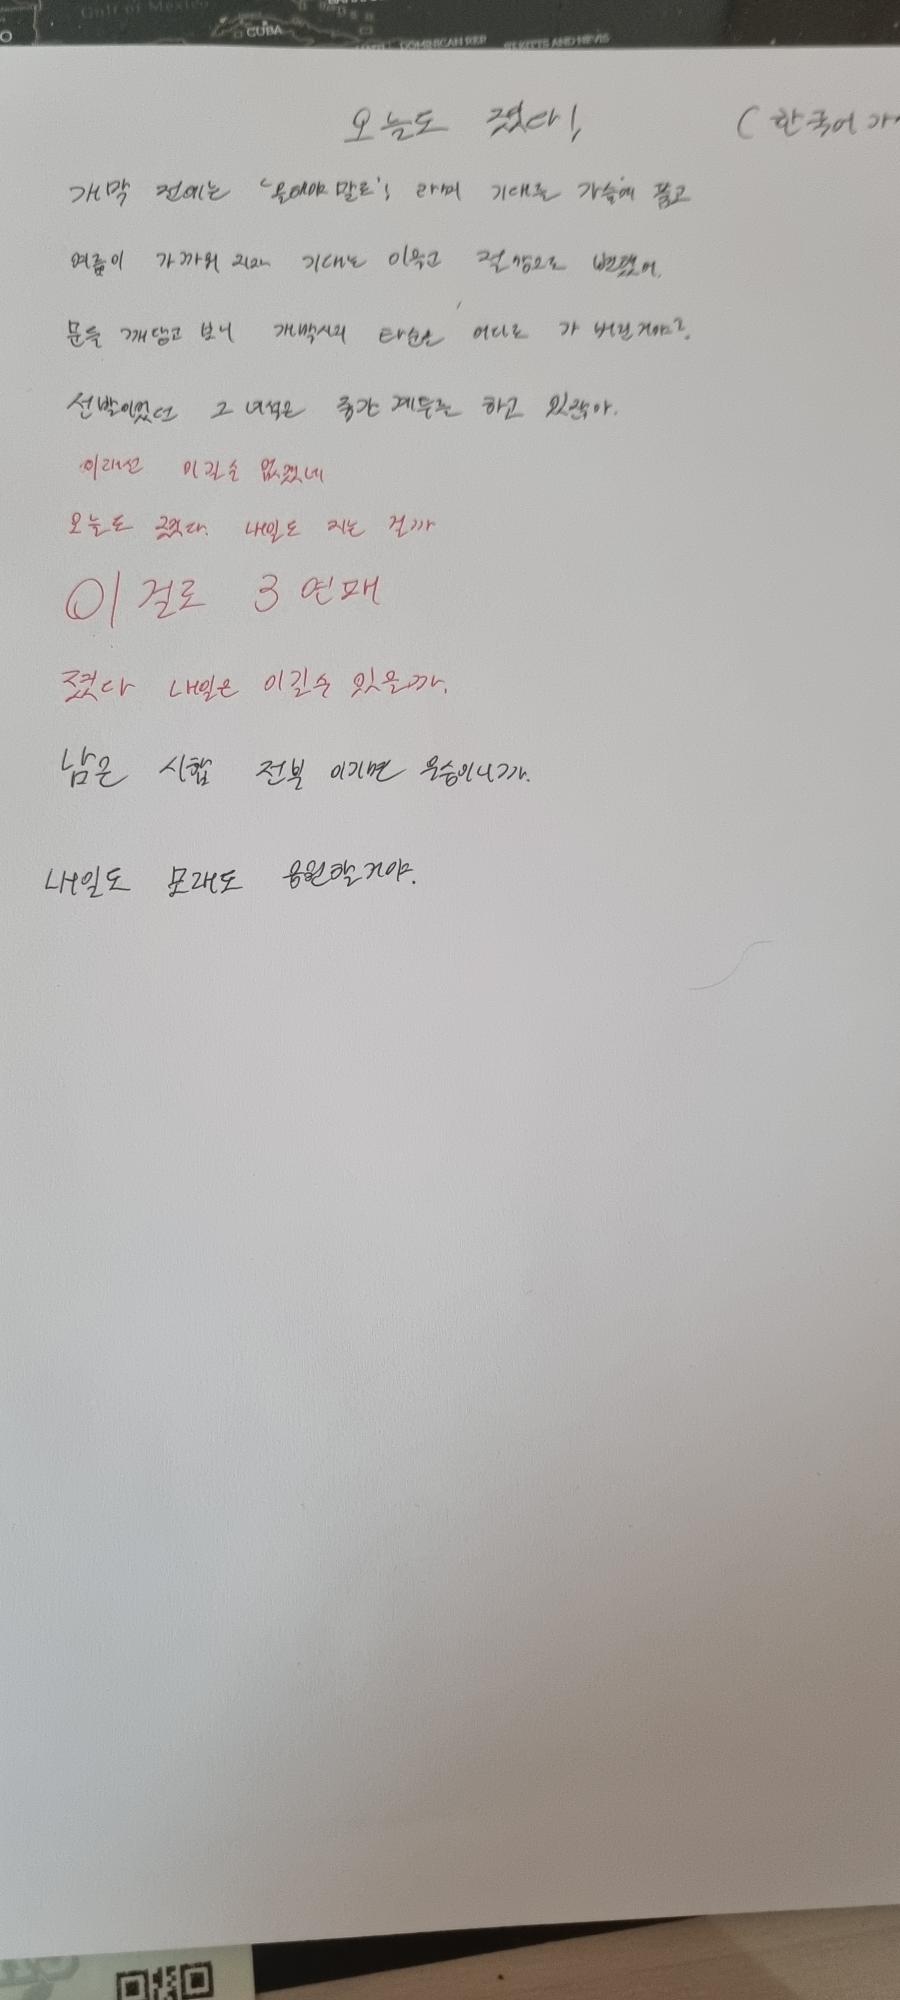 Gulf of Mexico
CUBA
DOMINICAN REP. ST.KITTS AND NEVIS
오늘도 졌다! (한국어 가
개막 전에는 '올해야말로'! 라며 기대를 가슴에 품고
여름이 가까워 지자 기대는 이윽고 절망으로 변했어.
문득 깨닫고 보니 개막시의 타순은 어디로 가 버린거야?
선발이었던 그 녀석은 중간 계투를 하고 있잖아.
이래선 이길수 없겠네
오늘도 졌다. 내일도 지는 걸까
이걸로 3연패
졌다 내일은 이길수 있을까.
남은 시합 전부 이기면 우승이니까.
내일도 모레도 응원할거야.